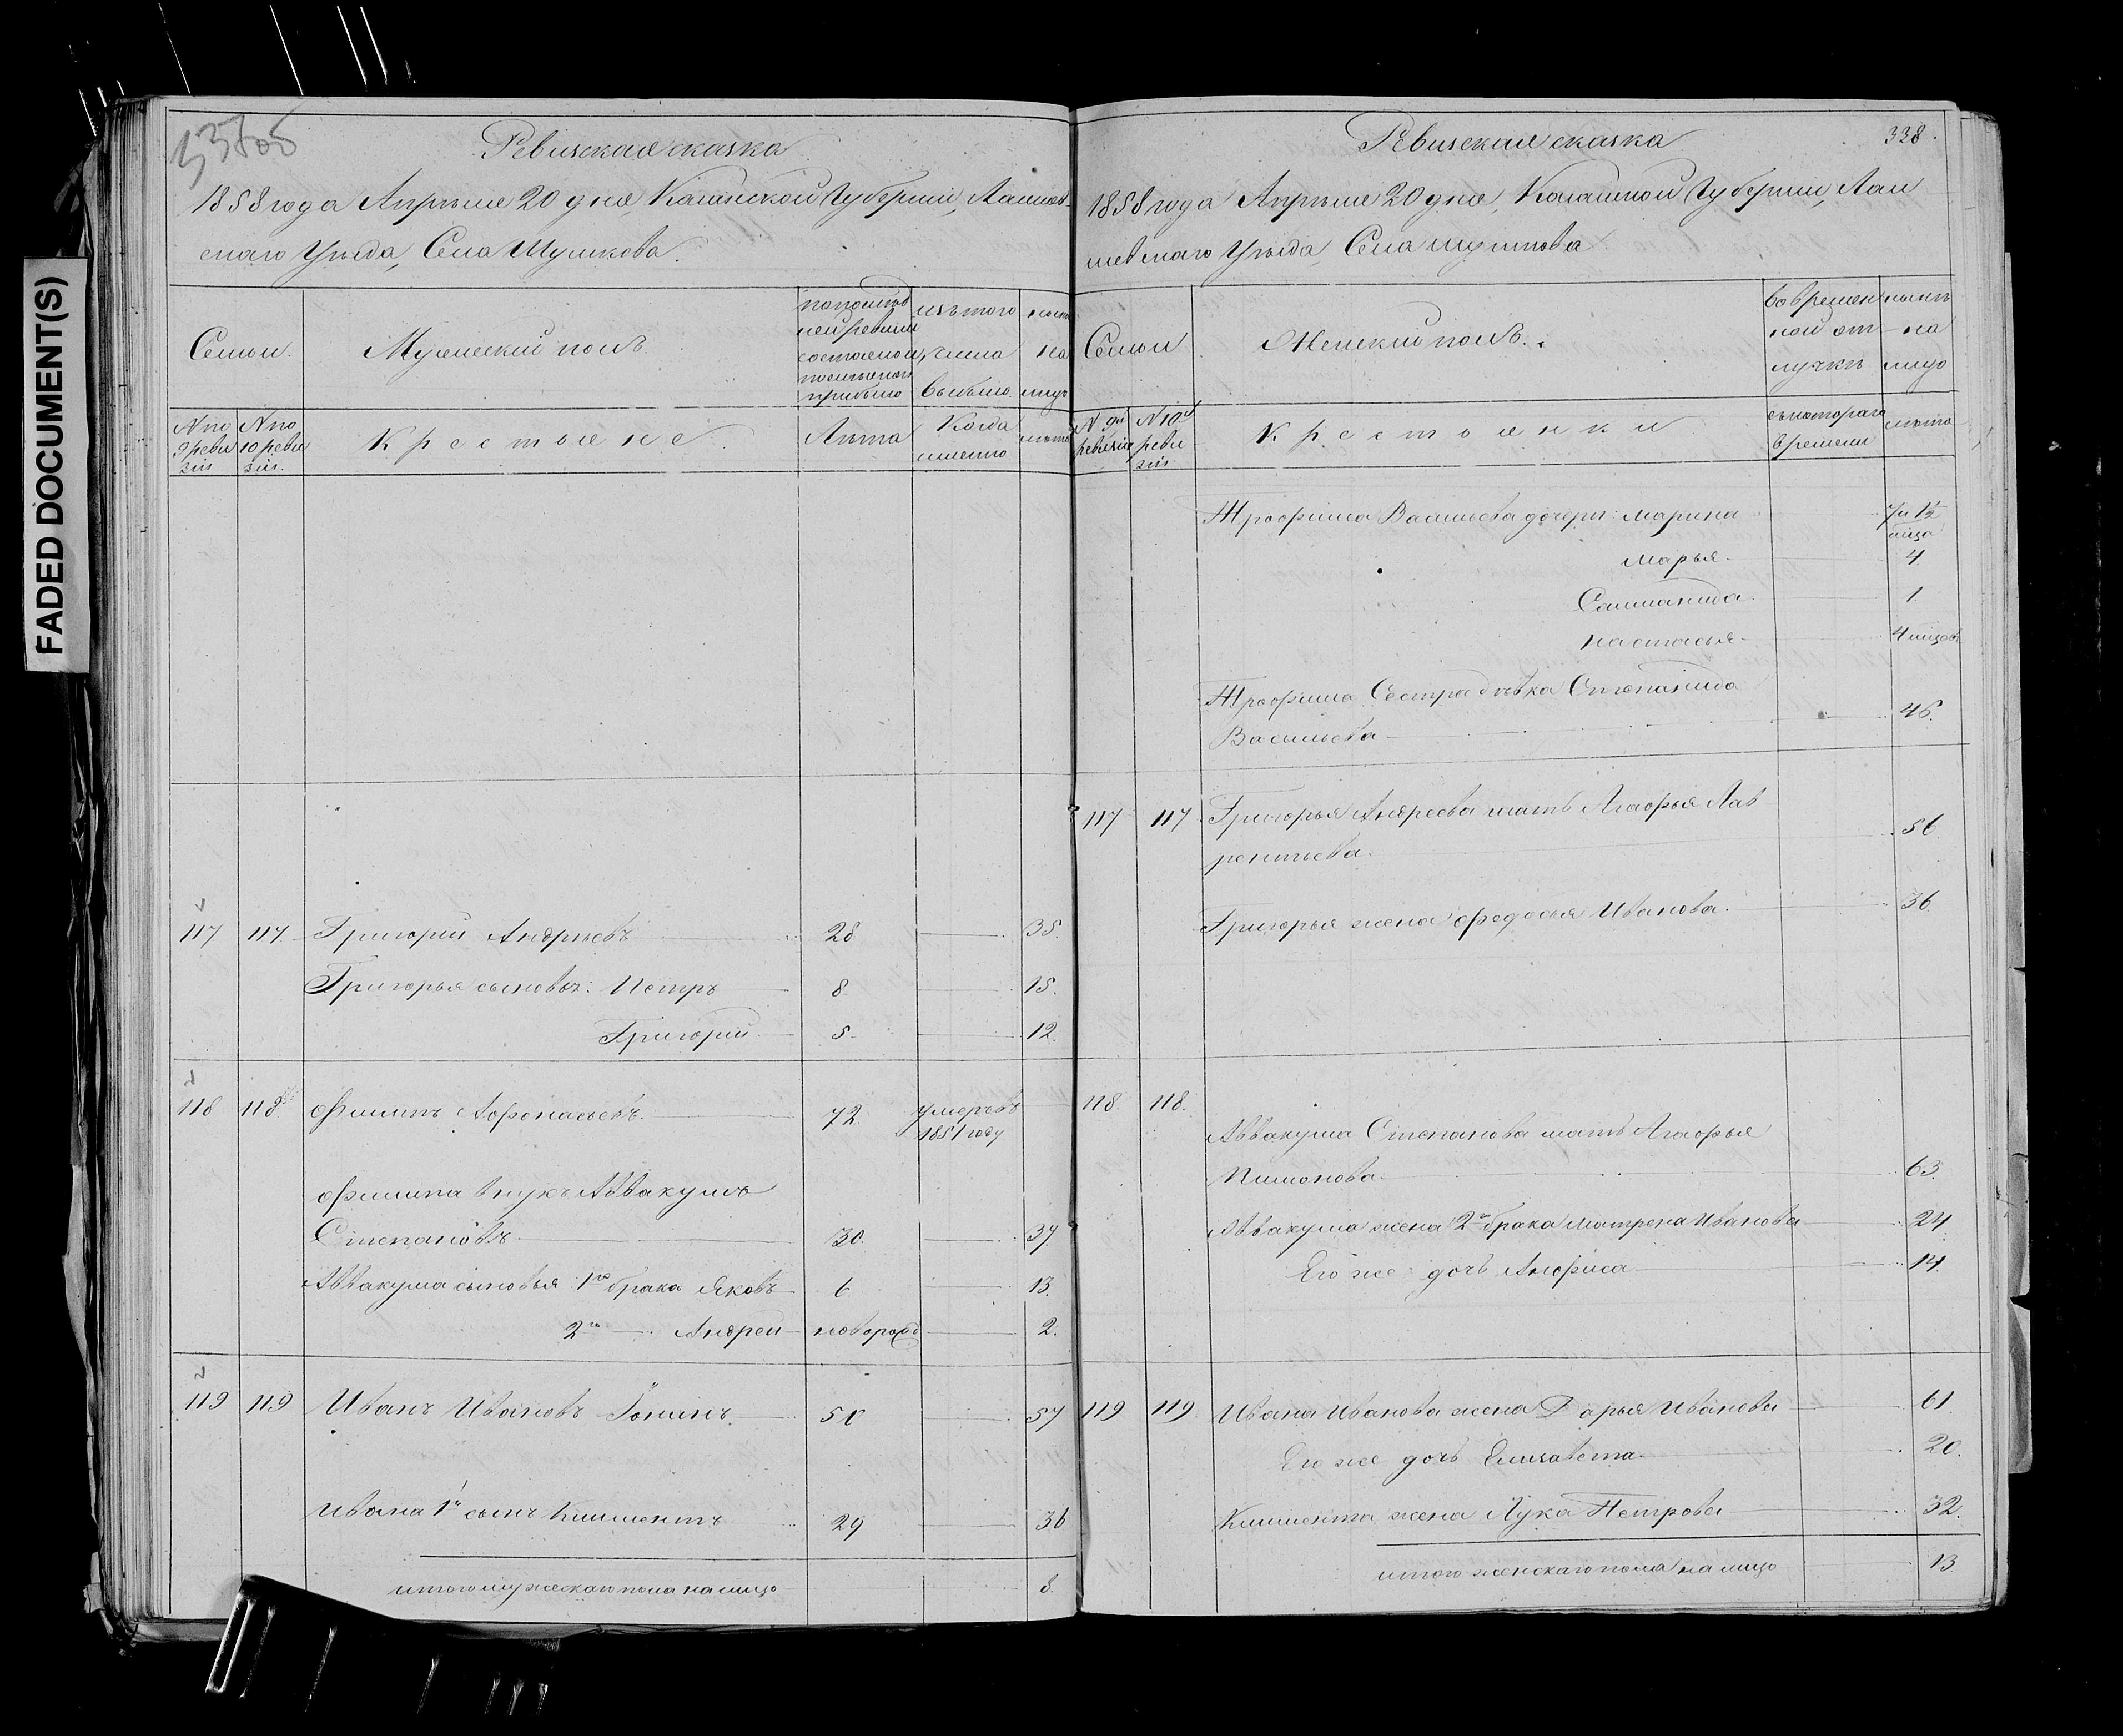 FADED DOCUMENT(S)
Ревизская сказка
1858 года Апрѣля 20 дня, Казанской Губерніи, Лаишев-
скаго Уѣзда, Села Шумкова.
Семьи.
Мужескій полъ.
по послѣд
ней ревизіи
состояло и
послѣ того
прибыло
изъ того
числа
выбыло.
нынѣ
на
лицо
№ по
9 реви
зіи
№ по
10 реви
зіи.
Крестьяне
Лѣта
Когда
именно
лѣта
117 117 Григорій Андрѣевъ 28 35.
Григорья сыновья: Петръ 8 15.
Григорій. 5 12.
118 118 Филипъ Афонасьевъ. 72. умеръ въ
1851 году
Филипа внукъ Аввакумъ
Степановъ 30. 37
Аввакума сыновья 1го брака Яковъ 6 13.
2го Андрей новорожд 2.
119 119 Иванъ Ивановъ 50 57
Ивана 1й сынъ Климентъ 29 36
итого мужескаго пола на лицо 8.
Ревизская сказка
338.
1858 года Апрѣля 20 дня, Казанской Губерніи, Лаи
шевскаго Уѣзда, Села Шумкова
Семьи
Женскій полъ.
Во времен
ной от
лучкѣ
нынѣ
на
лицо
№ 9й
ревизіи
№ 10й
реви
зіи
Крестьянки
съ котораго
времени
лѣта
Трофима Васильева дочери: Марина
Марья 4
Соломанида 1.
Настасья 4 мѣсяцов
Трофима Сестра дѣвка Степанида
Васильева 46.
117 117 Григорья Андреева мать Агафья Лав
рентьева. 56
Григорья жена Федосья Иванова. 36
118. 118.
Аввакума Степанова мать Агафья
Пимонова 63.
Аввакума жена 2го брака Матрена Иванова 24
Его же дочь Анфиса 14.
119 119 Ивана Иванова жена Дарья Иванова 61
Его же дочь Елизавета 20.
Климента жена Лукѣ Петрова 32.
итого женскаго пола на лицо 13